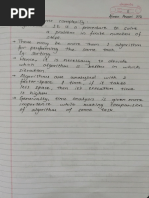 Time complexity
It is a procedure to solve
a problem in finite number of
There may be more than 1 algorithm
for performing the same task.
Eg. Sorting
Hence, it is necessary to decide
which algorithm is better in which
situation.
Algorithms are analysed with 2
factors space & time, if it takes
less space, then its execution time
is higher
Generally, time analysis is given more
importance while making comparison
of algorithms of same task.